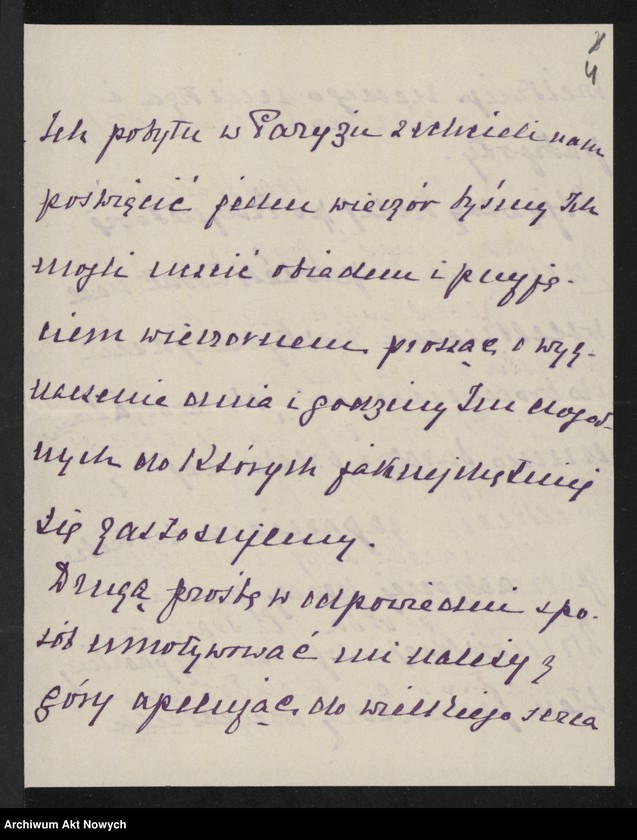 4
Ich pobytu w Paryżu zechcieli nam
poświęcić jeden wieczór byśmy Ich
mogli uczcić obiadem i przyję-
ciem wieczornem, prosząc o wyz-
naczenie dnia i godziny Im dogod-
nych do których jaknajchętniej
się zastosujemy.
Drugą prośbę w odpowiedni spo-
sób umotywować mi należy z
góry apelując do wielkiego serca
Archiwum Akt Nowych